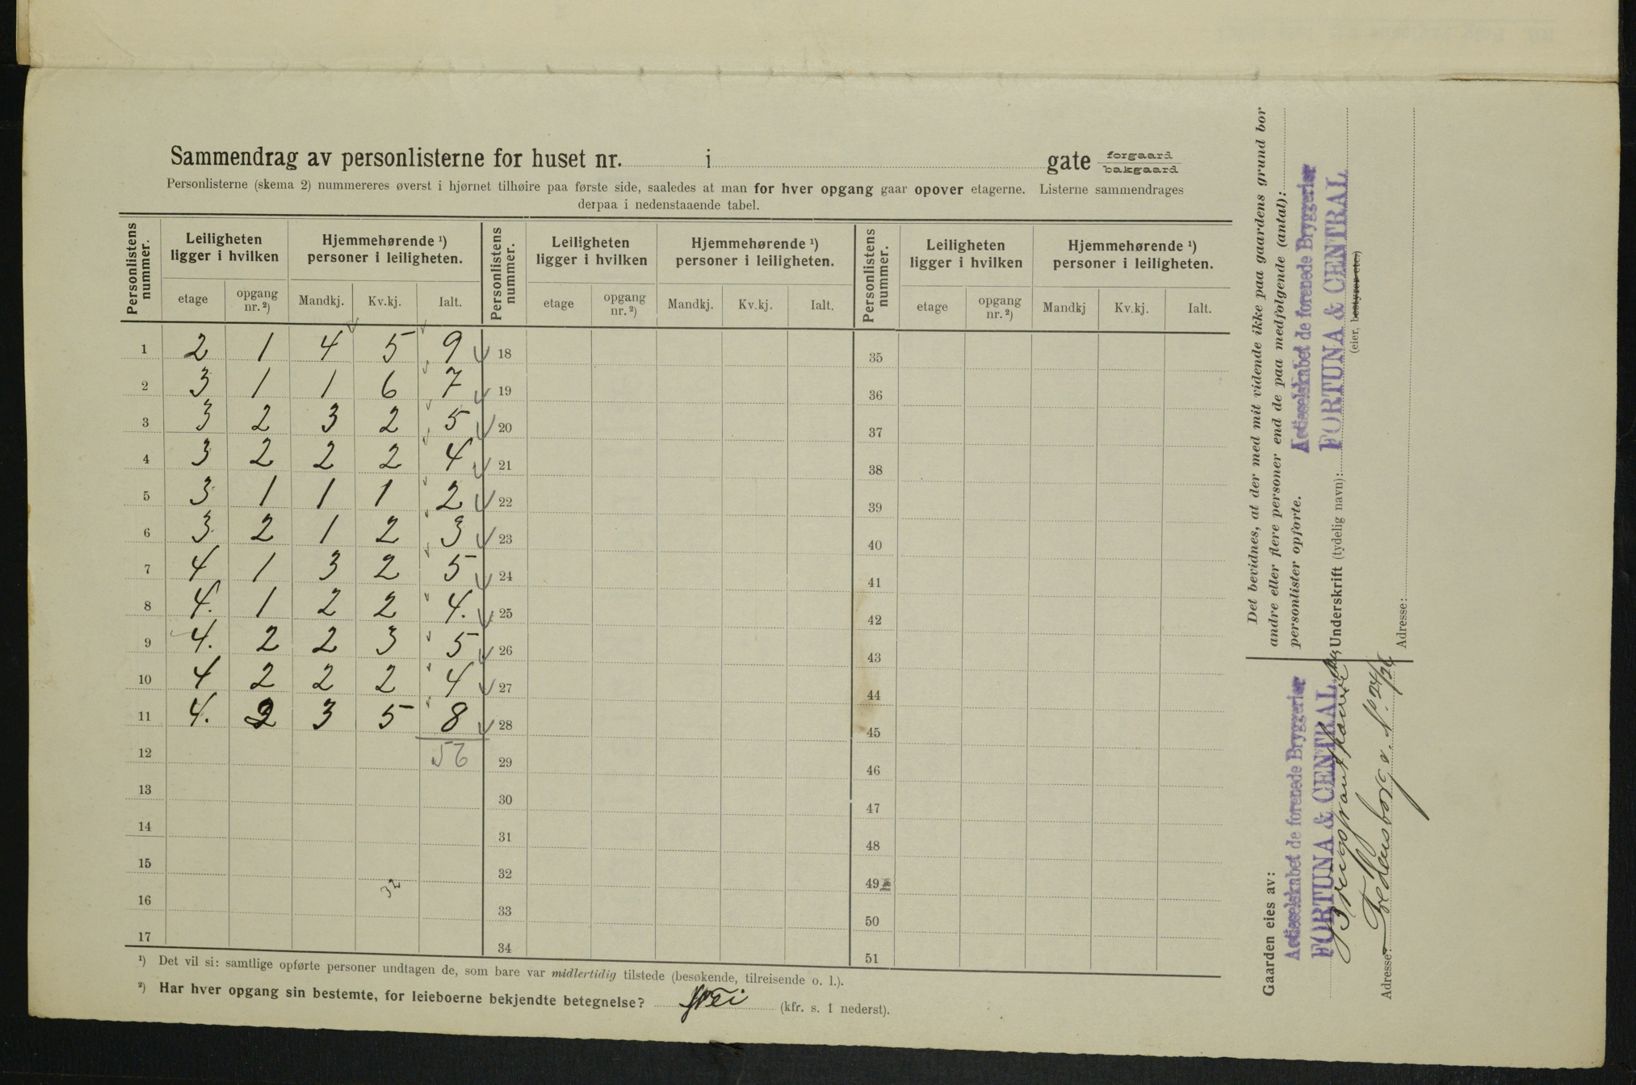 Sammendrag av personlisterne for huset nr. i gate forgaard bakgaard
Personlisterne (skema 2) nummereres øverst i hjørnet tilhøire paa første side, saaledes at man for hver opgang gaar opover etagerne. Listerne sammendrages
derpaa i nedenstaaende tabel.
Personlistens nummer. Leiligheten ligger i hvilken Hjemmehørende ¹) personer i leiligheten. Personlistens nummer. Leiligheten ligger i hvilken Hjemmehørende ¹) personer i leiligheten. Personlistens nummer. Leiligheten ligger i hvilken Hjemmehørende ¹) personer i leiligheten.
etage opgang nr. ²) Mandkj. Kv.kj. Ialt. etage opgang nr. ²) Mandkj. Kv.kj. Ialt. etage opgang nr. ²) Mandkj Kv.kj. Ialt.
1 2 1 4 5 9 18 35
2 3 1 1 6 7 19 36
3 3 2 3 2 5 20 37
4 3 2 2 2 4 21 38
5 3 1 1 1 2 22 39
6 3 2 1 2 3 23 40
7 4 1 3 2 5 24 41
8 4. 1 2 2 4. 25 42
9 4. 2 2 3 5 26 43
10 4 2 2 2 4 27 44
11 4. 2 3 5 8 28 45
12 56 29 46
13 30 47
14 31 48
15 32 49
16 33 50
17 34 51
¹) Det vil si: samtlige opførte personer undtagen de, som bare var midlertidig tilstede (besøkende, tilreisende o. l.).
²) Har hver opgang sin bestemte, for leieboerne bekjendte betegnelse? Nei (kfr. s. 1 nederst).
Det bevidnes, at der med mit vidende ikke paa gaardens grund bor
andre eller flere personer end de paa medfølgende (antal):
personlister opførte.
Actieselskabet de forenede Bryggerier
FORTUNA & CENTRAL
Underskrift (tydelig navn):
(eier, bestyrer etc.)
Adresse:
Gaarden eies av:
Actieselskabet de forenede Bryggerier
FORTUNA & CENTRAL
Adresse: